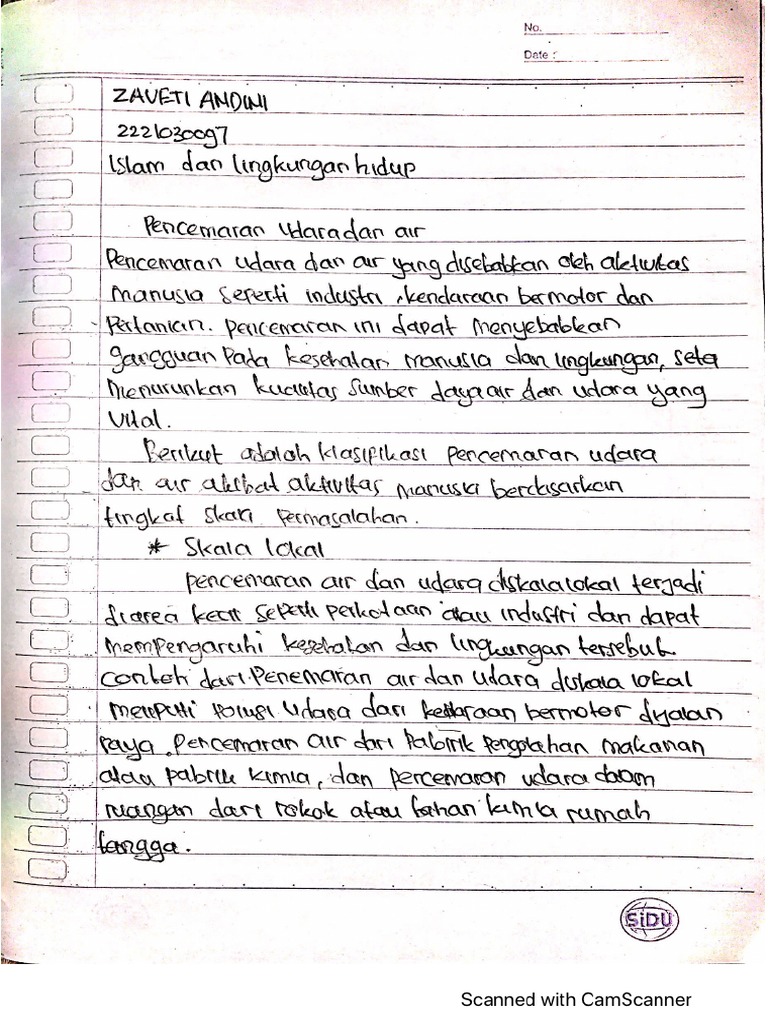 No.
Date :
ZAVETI ANDINI
2221030097
Islam dan lingkungan hidup
Pencemaran Udara dan air
Pencemaran udara dan air yang disebabkan oleh aktivitas
manusia seperti industri, kendaraan bermotor dan
Pertanian. pencemaran ini dapat menyebabkan
gangguan Pada kesehatan manusia dan lingkungan, seta
menurunkan kualitas sumber daya air dan udara yang
vital.
Berikut adalah klasifikasi pencemaran udara
dan air akibat aktivitas manusia berdasarkan
tingkat skala permasalahan.
* Skala lokal
pencemaran air dan udara diskala lokal terjadi
diarea kecil seperti perkotaan atau industri dan dapat
mempengaruhi kesehatan dan lingkungan tersebut
contoh dari Penemaran air dan udara diskala lokal
meliputi polusi udara dari kendaraan bermotor dijalan
raya, Pencemaran air dari Pabrik pengolahan makanan
atau pabrik kimia, dan percemaran udara dalam
ruangan dari rokok atau bahan kimia rumah
tangga.
SiDU
Scanned with CamScanner